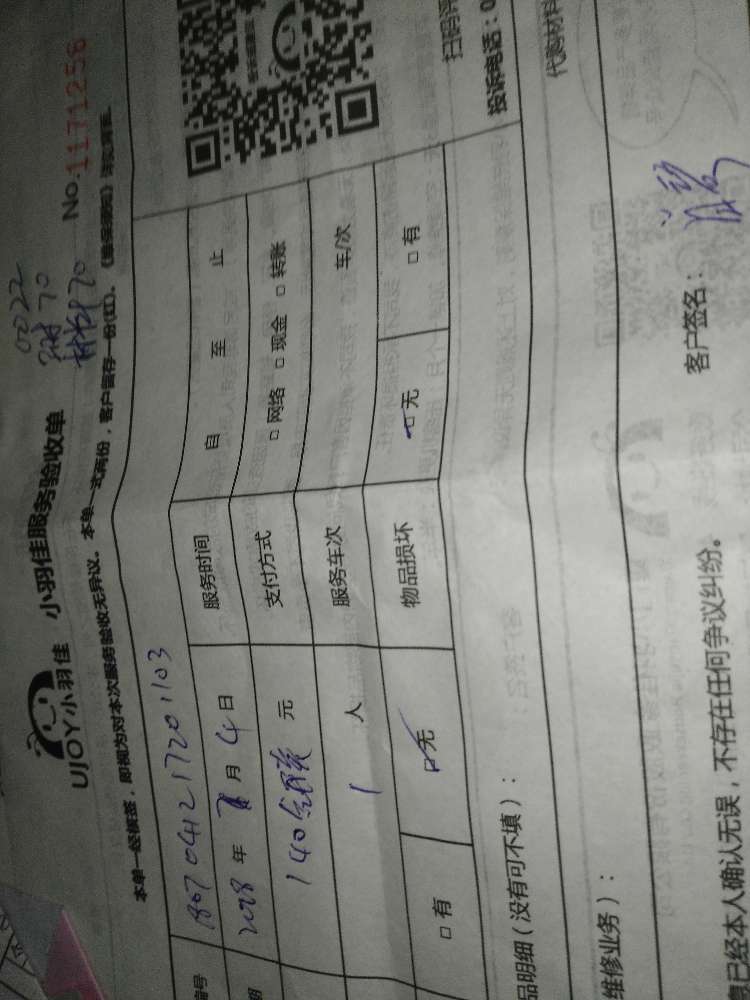 0022
谢70
UJOY小羽佳 小羽佳服务验收单 No:1171256
本单一经核签，即视为对本次服务验收无异议。本单一式两份，客户留存一份(红)。《维保须知》详见背面。
编号 180704121720 1103
2018年7月4日 服务时间 自 至 止
140 元 支付方式 □网络 □现金 □转账
1 人 服务车次 车/次
□有 □无 物品损坏 □无 □有
扫码评
投诉电话：0
品明细（没有可不填）：
代购材料
维修业务）：
息已经本人确认无误，不存在任何争议纠纷。 客户签名：